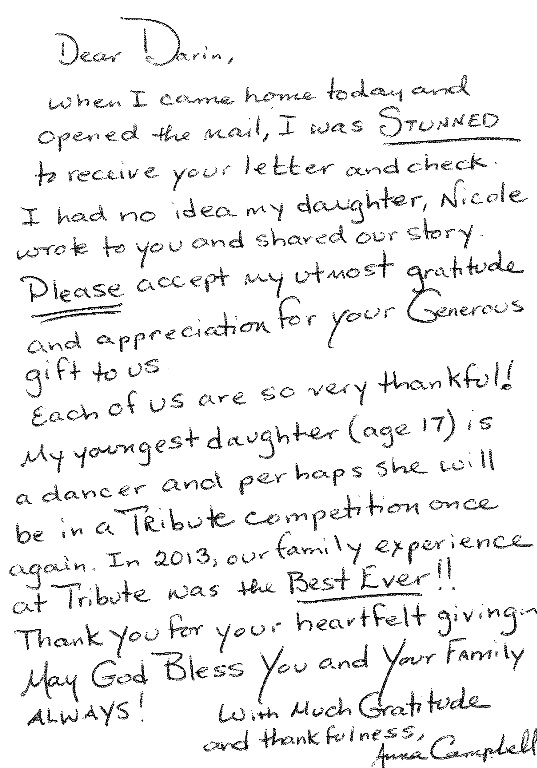 Dear Darin,
When I came home today and
opened the mail, I was STUNNED
to receive your letter and check.
I had no idea my daughter, Nicole
wrote to you and shared our story.
Please accept my utmost gratitude
and appreciation for your Generous
gift to us
Each of us are so very thankful!
My youngest daughter (age 17) is
a dancer and perhaps she will
be in a TRibute competition once
again. In 2013, our family experience
at Tribute was the Best Ever!!
Thank you for your heartfelt giving.
May God Bless You and Your Family
ALWAYS!
With Much Gratitude
and thankfulness,
Anna Campbell